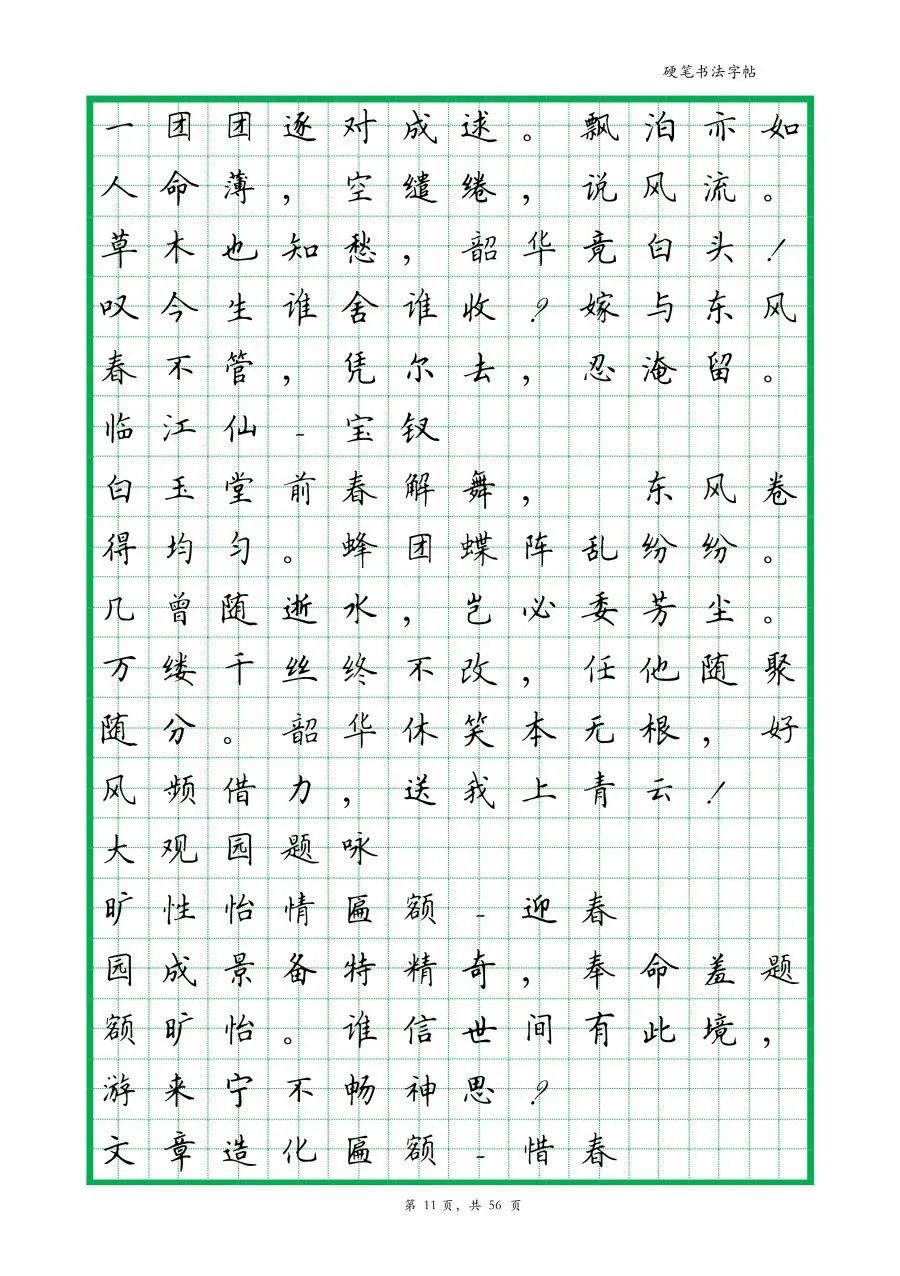 硬笔书法字帖
一团团逐对成逑。飘泊亦如
人命薄，空缱绻，说风流。
草木也知愁，韶华竟白头！
叹今生谁舍谁收？嫁与东风
春不管，凭尔去，忍淹留。
临江仙-宝钗
白玉堂前春解舞，　东风卷
得均匀。蜂团蝶阵乱纷纷。
几曾随逝水，岂必委芳尘。
万缕千丝终不改，任他随聚
随分。韶华休笑本无根，好
风频借力，送我上青云！
大观园题咏
旷性怡情匾额-迎春
园成景备特精奇，奉命羞题
额旷怡。谁信世间有此境，
游来宁不畅神思？
文章造化匾额-惜春
第 11 页，共 56 页